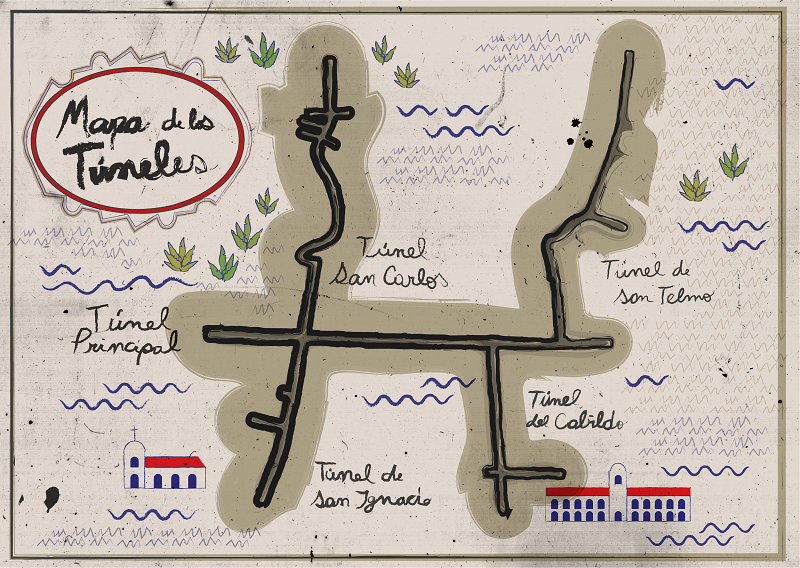 Mapa de los
Túneles
Túnel
San Carlos
Túnel de
San Telmo
Túnel
Principal
Túnel
del Cabildo
Túnel de
San Ignacio